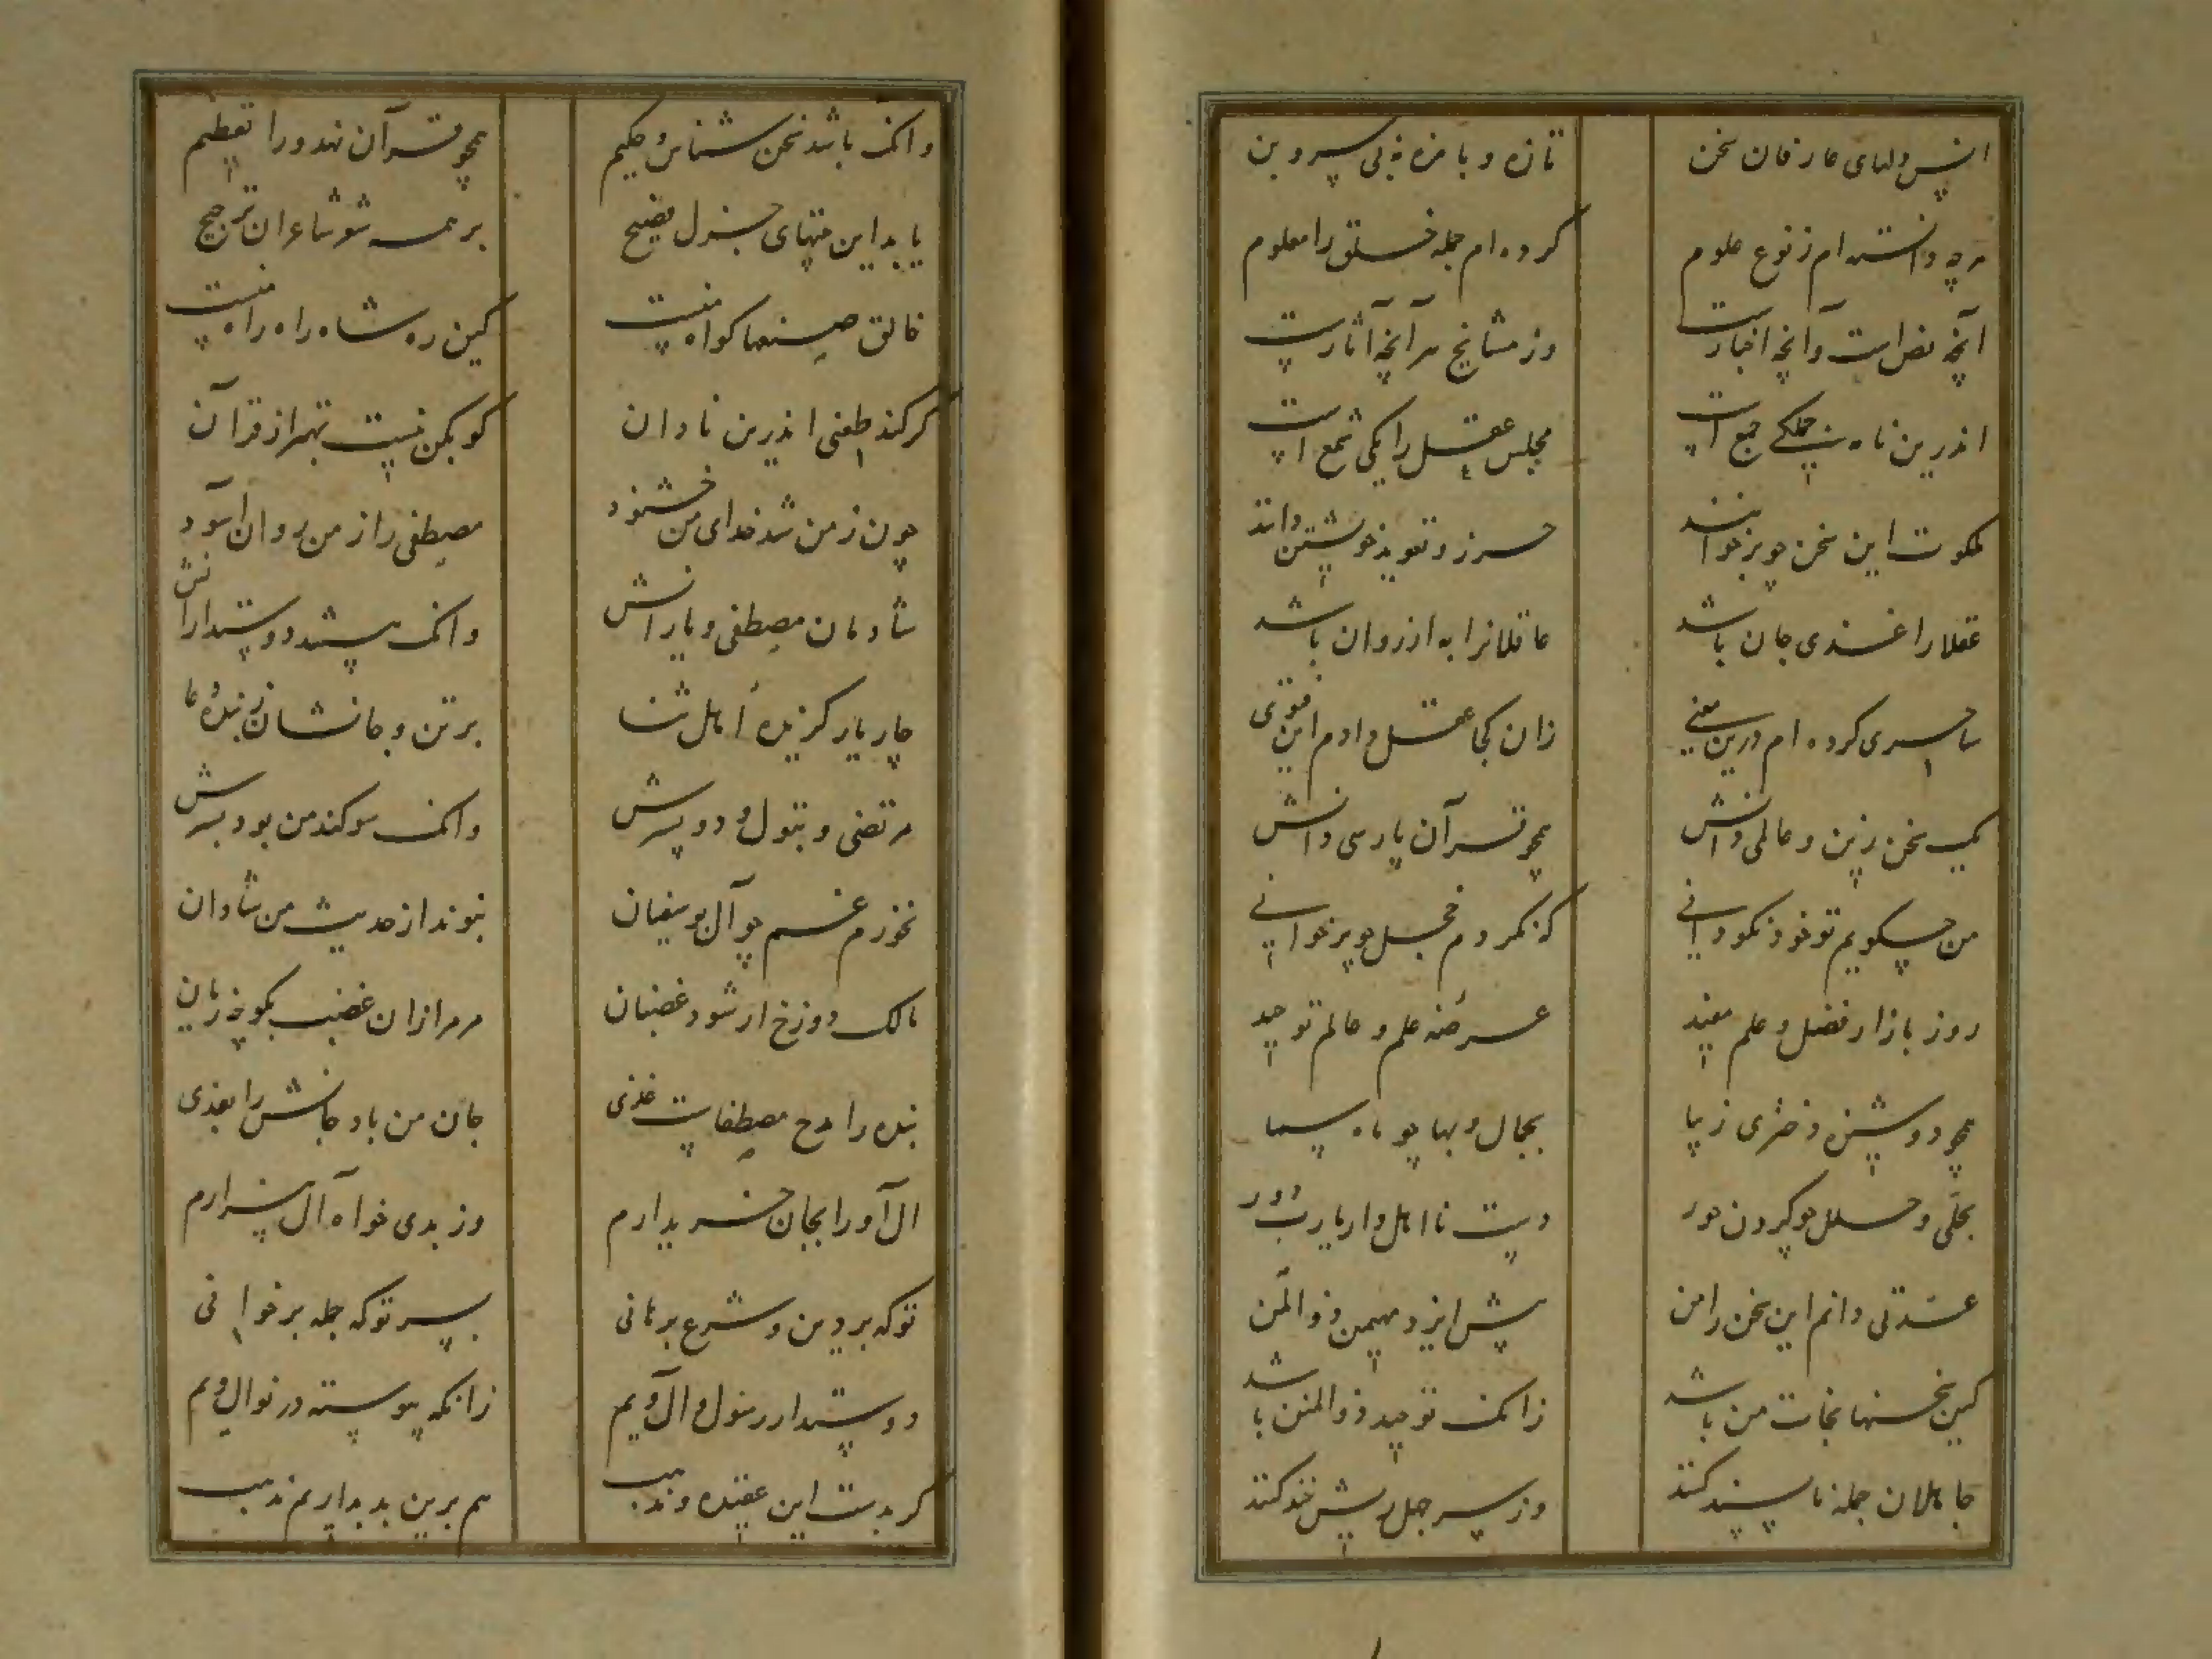 انس دلهای عارفان سخن
تازه و با مزه نه بی سر و بن
هرچه دانسته‌ام ز نوع علوم
کرده‌ام جمله خلق را معلوم
آنچه نص است و آنچه اخبارست
وز مشایخ هر آنچه آثارست
اندرین نامه جملگی جمع است
مجلس عقل را یکی شمع است
ملکوت این سخن چو برخوانند
حرز و تعویذ خویشتن دانند
عقلا را غذی جان باشد
عاقلانرا به از روان باشد
ساحری کرده‌ام درین معنی
زان کجا عقل دادم این فتوی
یک سخن زین و عالمی دانش
همچو قرآن پارسی دانش
من چگویم تو خود نکو دانی
که نکردم خجل چو برخوانی
روز بازار فضل و علم مفید
عرصه علم و عالم توحید
همچو دوشیزه دختری زیبا
بجمال و بها چو ماه سما
بحلی و حلل چو گردن حور
دست نااهل دار یارب دور
عدتی دانم این سخن را من
پیش ایزد مهیمن ذوالمن
کین سخنها نجات من باشد
زانک توحید ذوالمنن باشد
جاهلان جمله ناپسند کنند
وز سر جهل ریش خند کنند
وانک باشد سخن شناس و حکیم
همچو قرآن نهد ورا تعظیم
یابد این منتهای جزل فصیح
بر همه شعر شاعران ترجیح
خالق صنعها گواه منست
کین ره شاه راه راه منست
گر کند طعنی اندرین نادان
گو بکن نیست بهتر از قرآن
چون ز من شد خدای من خشنود
مصطفی را ز من روان آسود
شادمان مصطفی و یارانش
وانک هستند دوستدارانش
چار یار گزیده اهل ثنا
بر تن و جانشان ز بنده دعا
مرتضی و بتول و دو پسرش
وانک سوگند من بود بسرش
نخورم غم چو آل بوسفیان
نبوند از حدیث من شادان
مالک دوزخ ار شود غضبان
مر مرا زان غضب بگو چه زیان
بنده را مدح مصطفاست غذی
جان من باد جانش را بفدی
آل او را بجان خریدارم
وز بدی خواه آل بیزارم
تو که بر دین و شرع برهانی
بسر تو که جمله برخوانی
دوستدار رسول و آل ویم
زانکه پیوسته در نوال ویم
گر بدست این عقیده و مذهب
هم برین بد بداریم مذهب